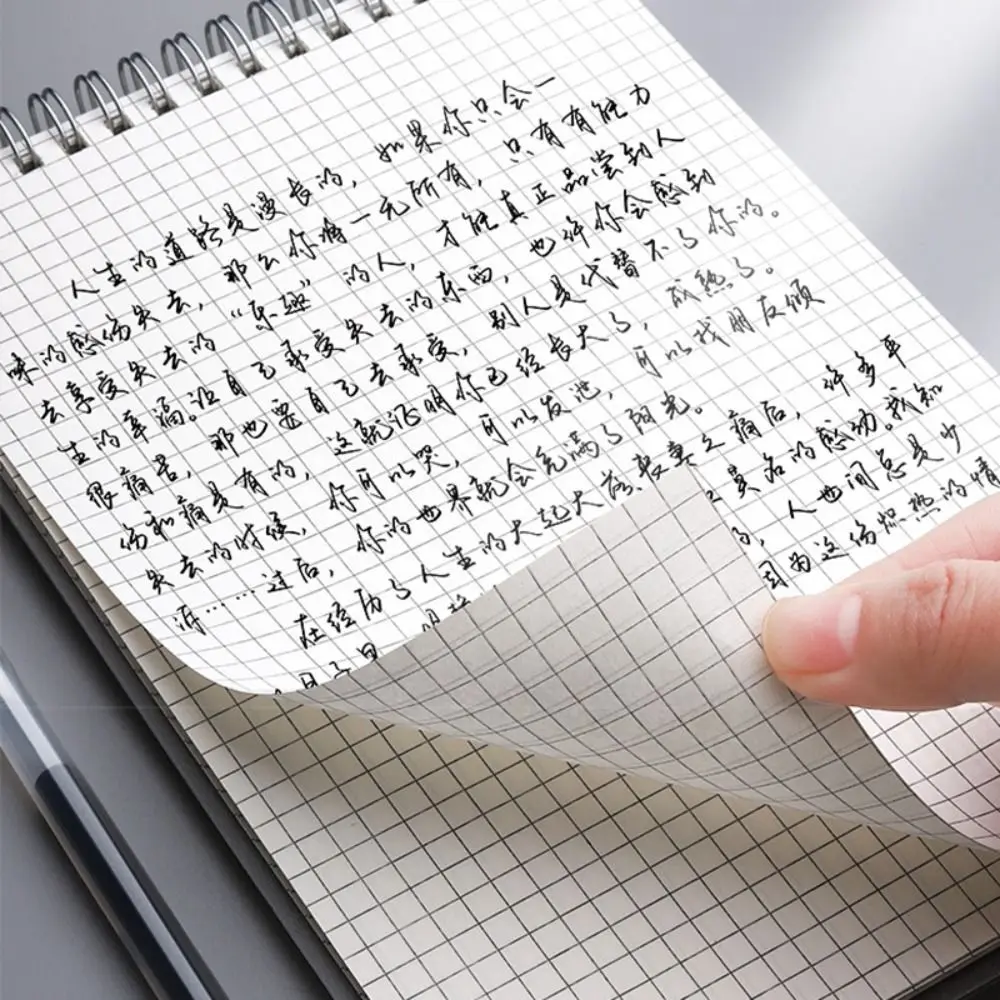 人生的道路是漫长的，如果你只会一
味的感伤失去，那么你将一无所有，只有有能力
去享受失去的“乐趣”的人，才能真正品尝到人
生的幸福。没自己承受失去的东西，也许你会感到
很痛苦，那也要自己去承受，别人是代替不了你的。
伤和痛是有的，这就证明你已经长大了，成熟了。
失去的时候，你可以哭，可以发泄，可以找朋友倾
诉……过后，你的世界就会充满了阳光。
在经历了人生的大起大落表真之痛后，许多平
莫名的感动。我知
人世间总是少
因为这份炽热的情